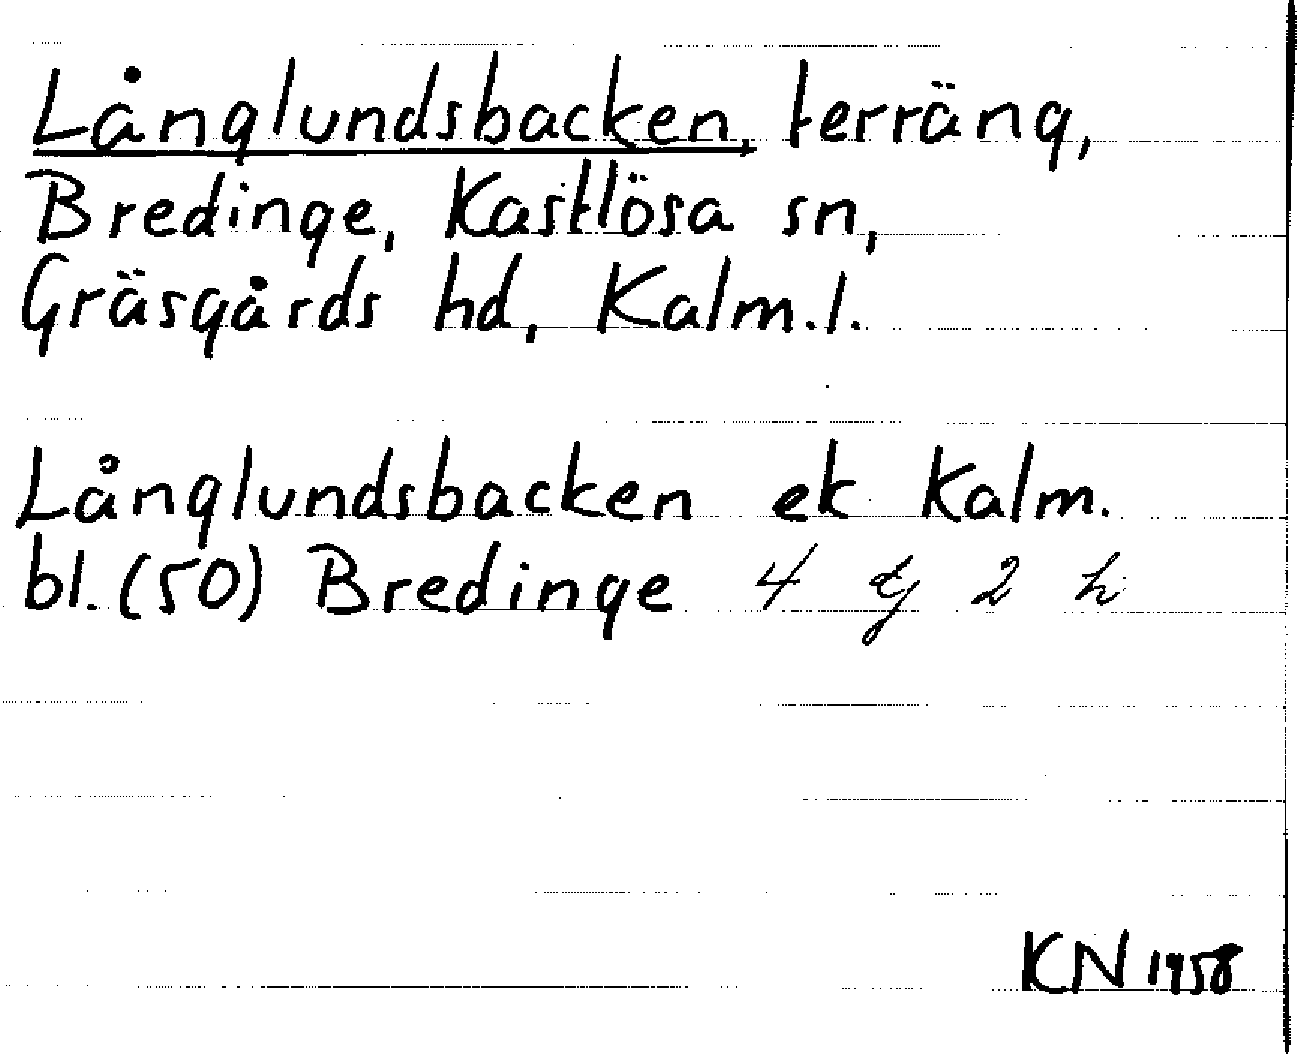 Långlundsbacken, terräng,
Bredinge, Kastlösa sn,
Gräsgårds hd, Kalm.l.
Långlundsbacken ek Kalm.
bl. (50) Bredinge 4 g 2 h
KN 1958